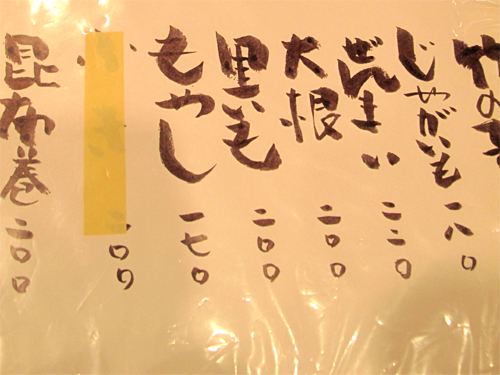 竹の子
じゃがいも 一八〇
ぜんまい 二二〇
大根 二〇〇
里いも 二〇〇
もやし 一七〇
〇〇
昆布巻 二〇〇